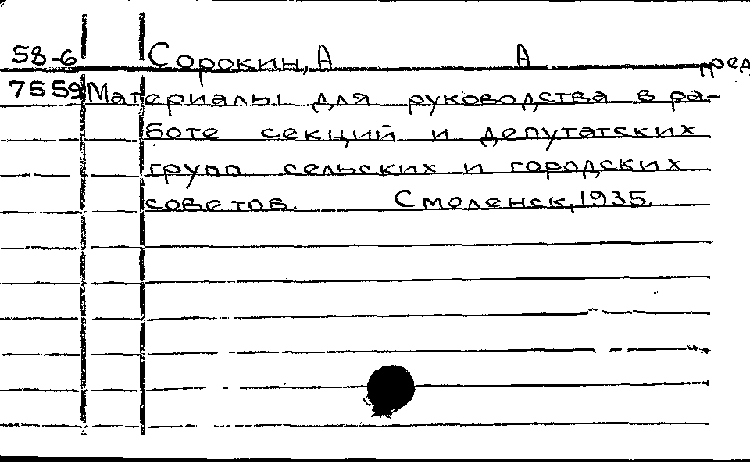 58-6 Сорокин, А А пред
7559 Материалы для руководства в ра-
боте секций и депутатских
групп сельских и городских
советов. Смоленск, 1935.